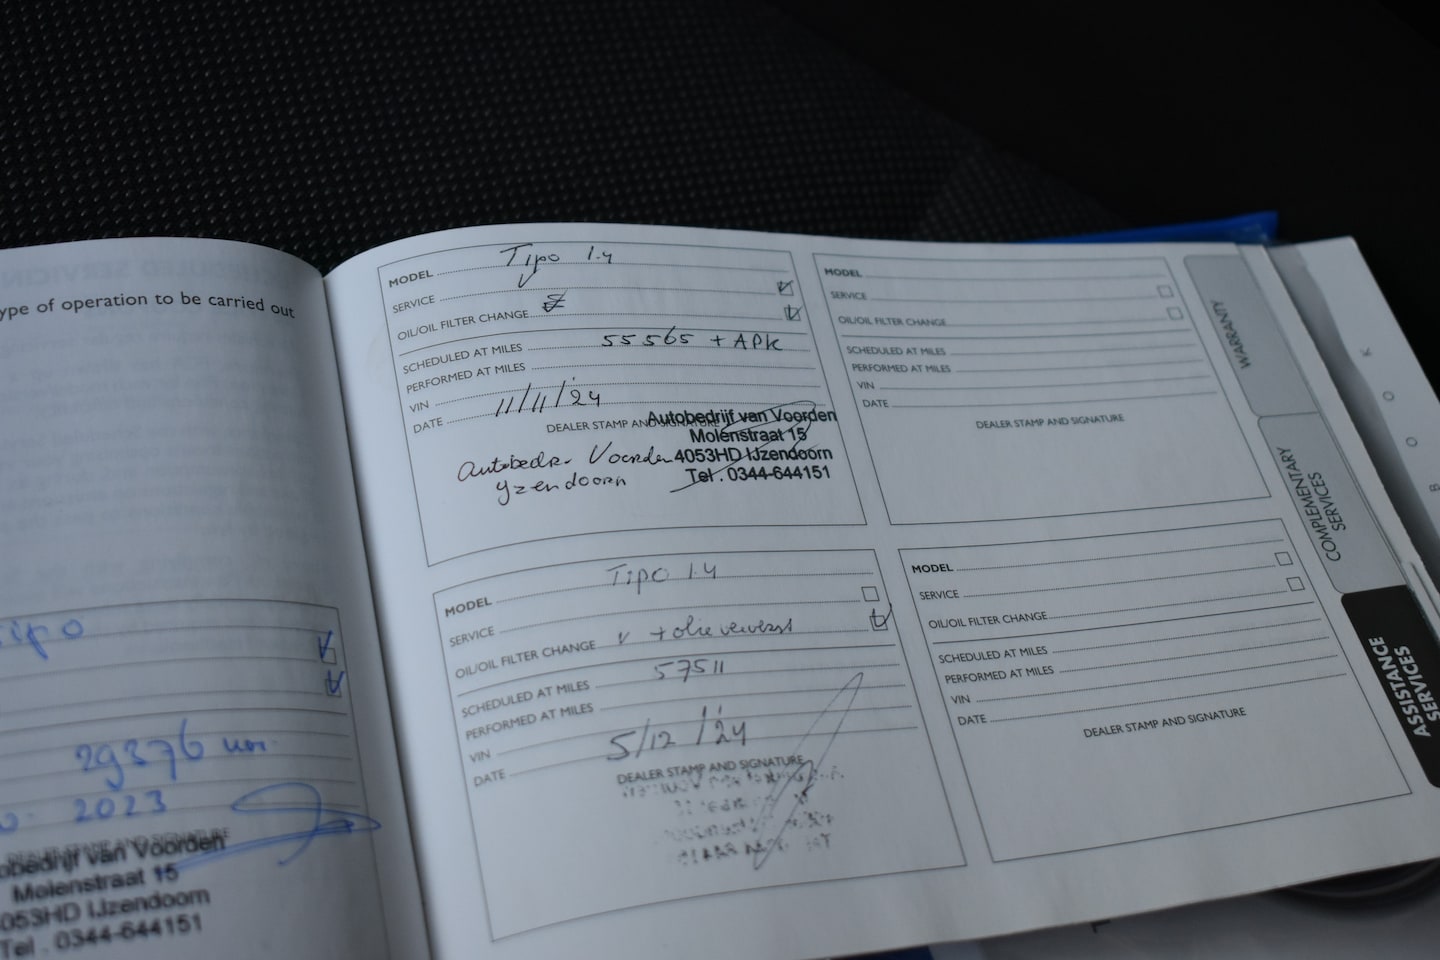 ype of operation to be carried out
Tipo
29376 km
2023
DEALER STAMP AND SIGNATURE
obedrijf van Voorden
Molenstraat 15
053HD IJzendoorn
Tel . 0344-644151
MODEL Tipo 1.4
SERVICE
OIL/OIL FILTER CHANGE
SCHEDULED AT MILES 55565 + APK
PERFORMED AT MILES
VIN
DATE 11/11/'24
DEALER STAMP AND SIGNATURE
Autobedrijf van Voorden
Molenstraat 15
4053HD IJzendoorn
Tel . 0344-644151
Autobedr. Voorden
Yzendoorn
MODEL Tipo 1.4
SERVICE
OIL/OIL FILTER CHANGE
SCHEDULED AT MILES 57511
PERFORMED AT MILES
VIN
DATE 5/12/'24
DEALER STAMP AND SIGNATURE
MODEL
SERVICE
OIL/OIL FILTER CHANGE
SCHEDULED AT MILES
PERFORMED AT MILES
VIN
DATE
DEALER STAMP AND SIGNATURE
MODEL
SERVICE
OIL/OIL FILTER CHANGE
SCHEDULED AT MILES
PERFORMED AT MILES
VIN
DATE
DEALER STAMP AND SIGNATURE
WARRANTY
COMPLEMENTARY
SERVICES
ASSISTANCE
SERVICES
B O O K